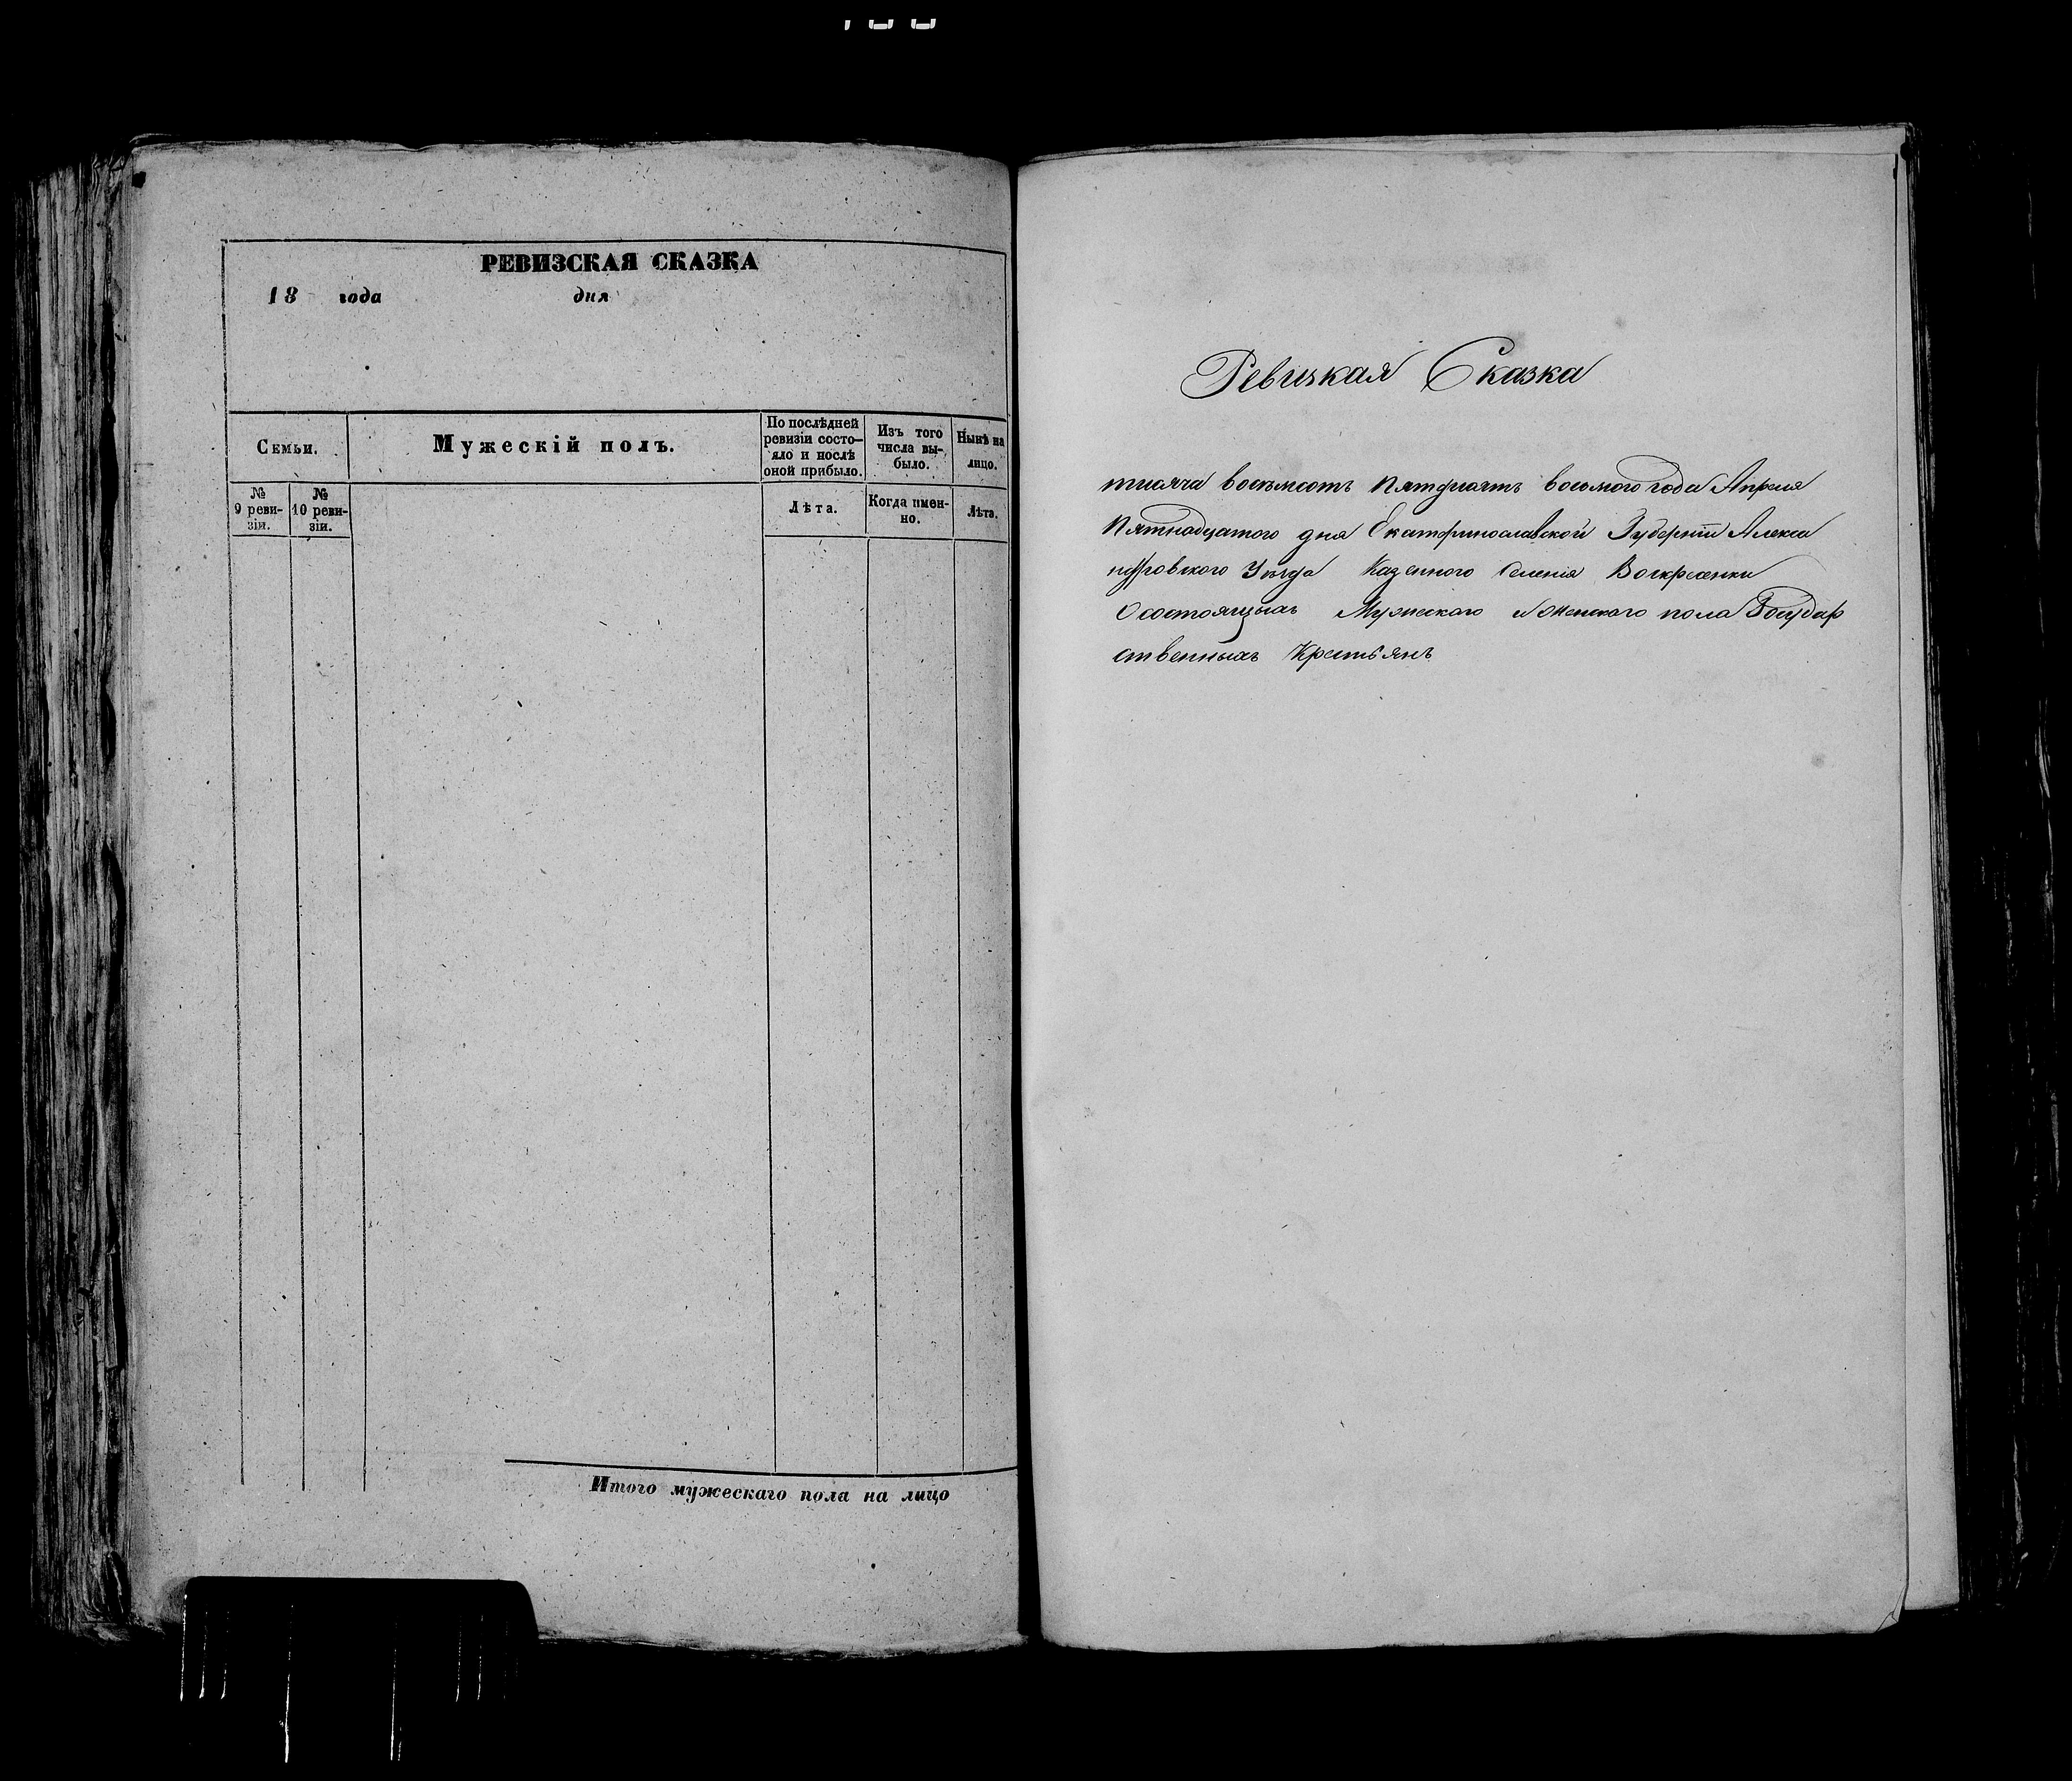 РЕВИЗСКАЯ СКАЗКА
18 года дня
Семьи.
Мужескій полъ.
По послѣдней
ревизіи состо-
яло и послѣ
оной прибыло.
Изъ того
числа вы-
было.
Нынѣ на
лицо.
№
9 реви-
зіи.
№
10 реви-
зіи.
Лѣта.
Когда имен-
но.
Лѣта.
Итого мужескаго пола на лицо
Ревизкая Сказка
тысяча восемьсотъ пятдесятъ восьмого года Апреля
Пятнадцатого дня Екатеринославской Губерніи Алекса
ндровского Уезда Казенного селенія Воскресенки
О состоящихъ Мужескаго и женскаго пола Государ
ственныхъ Крестьянъ